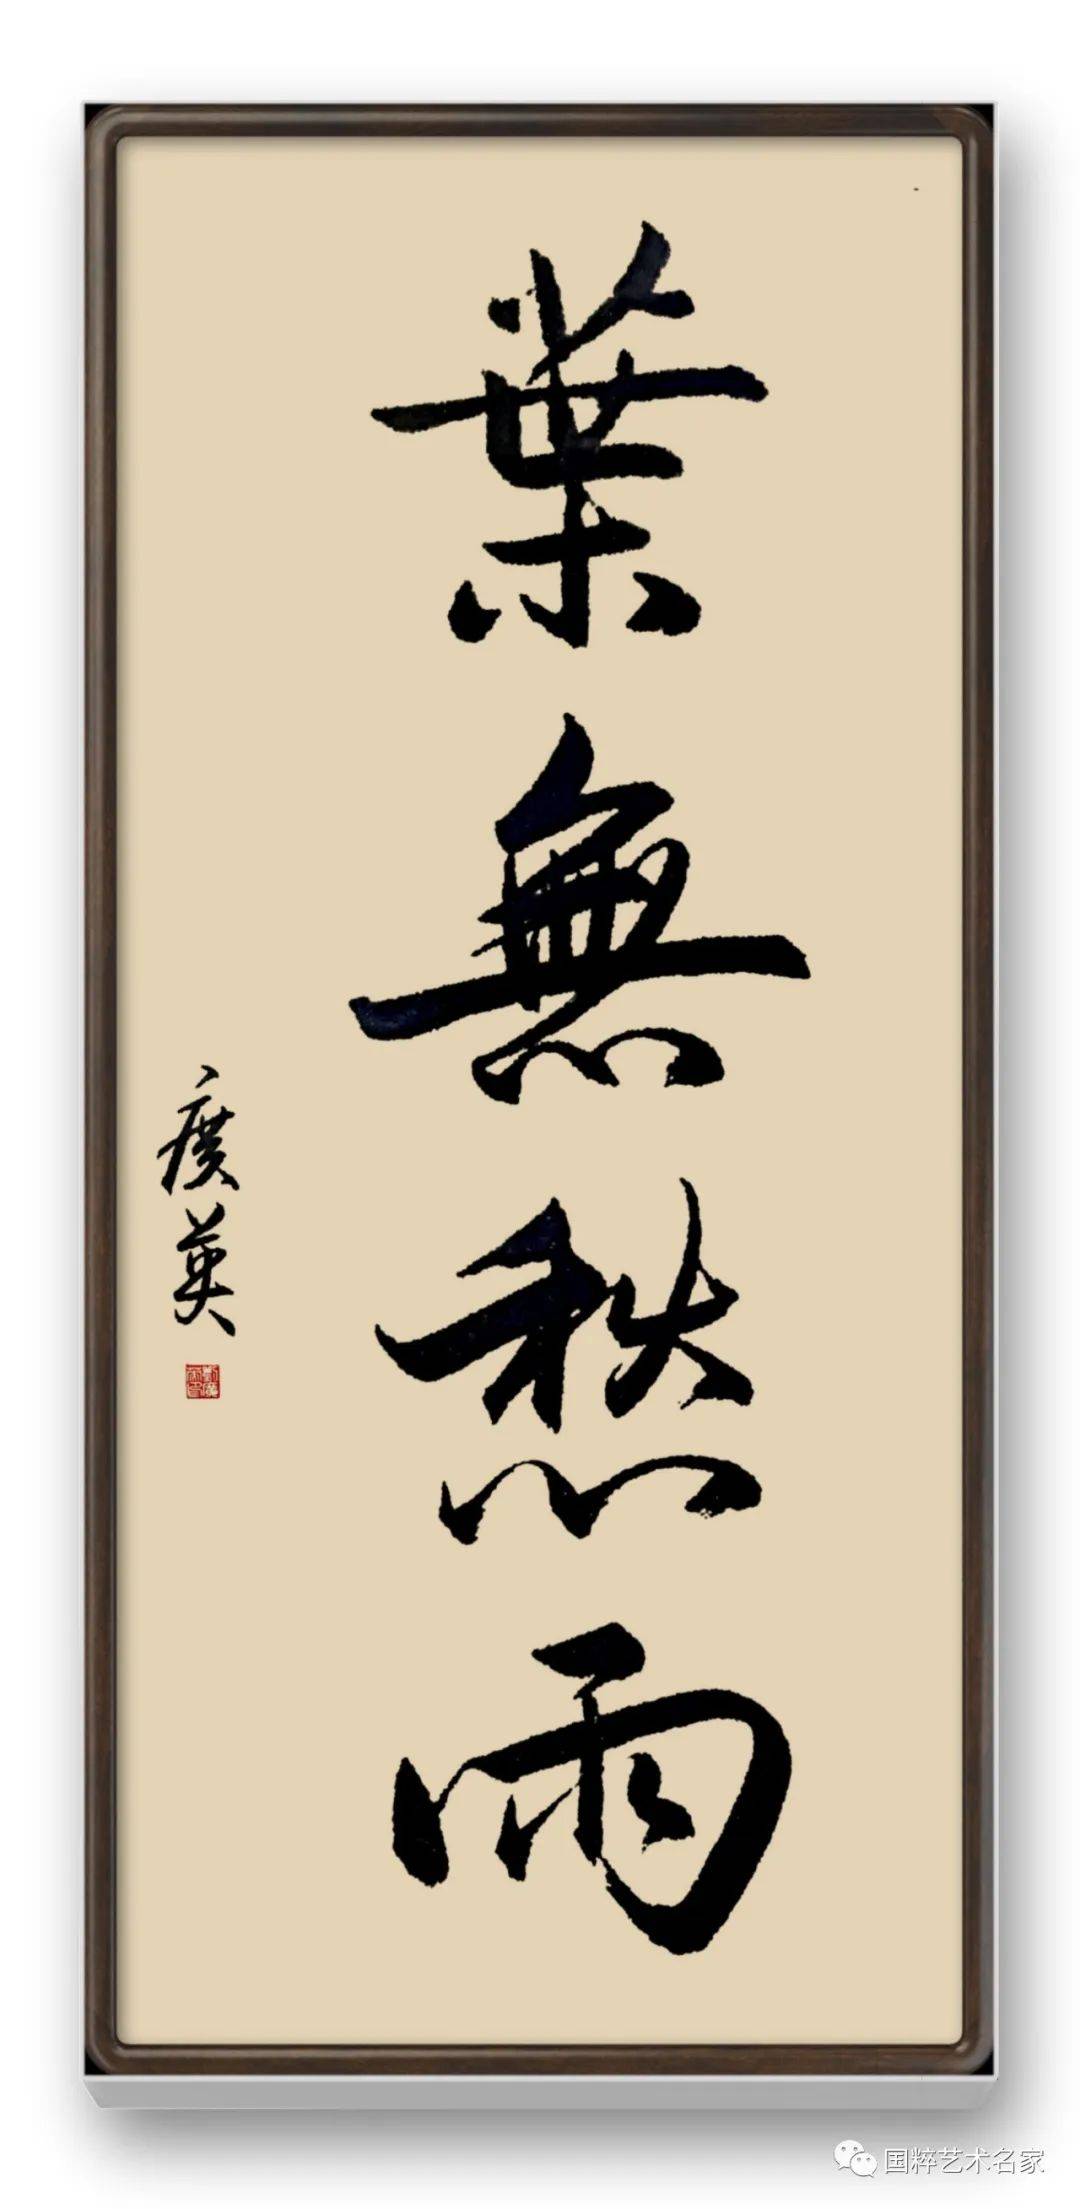 葉無愁雨
廣英
国粹艺术名家